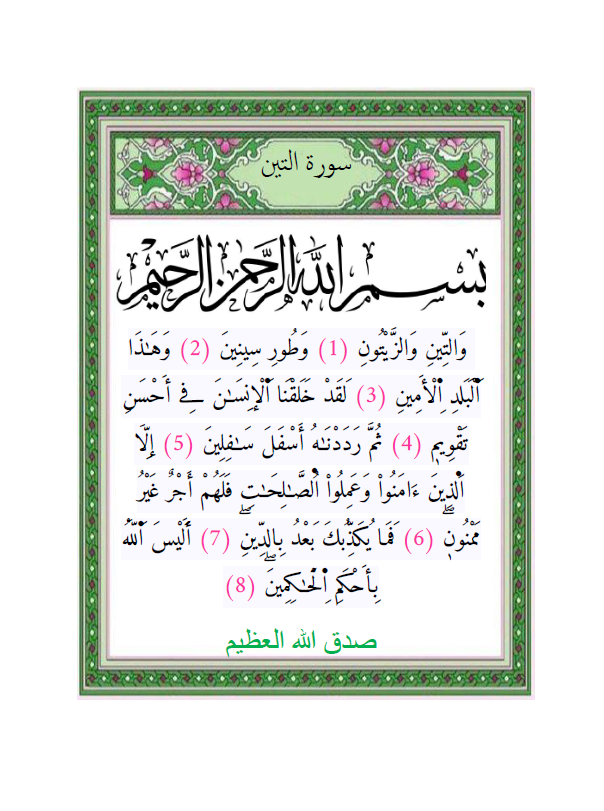 سورة التين
بسم الله الرحمن الرحيم
وَالتِّينِ وَالزَّيْتُونِ (1) وَطُورِ سِينِينَ (2) وَهَـٰذَا
اَ۬لْبَلَدِ اِ۬لْأَمِينِ (3) لَقَدْ خَلَقْنَا اَ۬لْإِنسَـٰنَ فِے أَحْسَنِ
تَقْوِيمٍ (4) ثُمَّ رَدَدْنَـٰهُ أَسْفَلَ سَـٰفِلِينَ (5) إِلَّا
اَ۬لذِينَ ءَامَنُواْ وَعَمِلُواْ اُ۬لصَّـٰلِحَـٰتِۖ فَلَهُمْ أَجْرٌ غَيْرُ
مَمْنُونٍۖ (6) فَمَا يُكَذِّبُكَ بَعْدُ بِالدِّينِۖ (7) أَلَيْسَ اَ۬للَّهُ
بِأَحْكَمِ اِ۬لْحَـٰكِمِينَۖ (8)
صدق الله العظيم